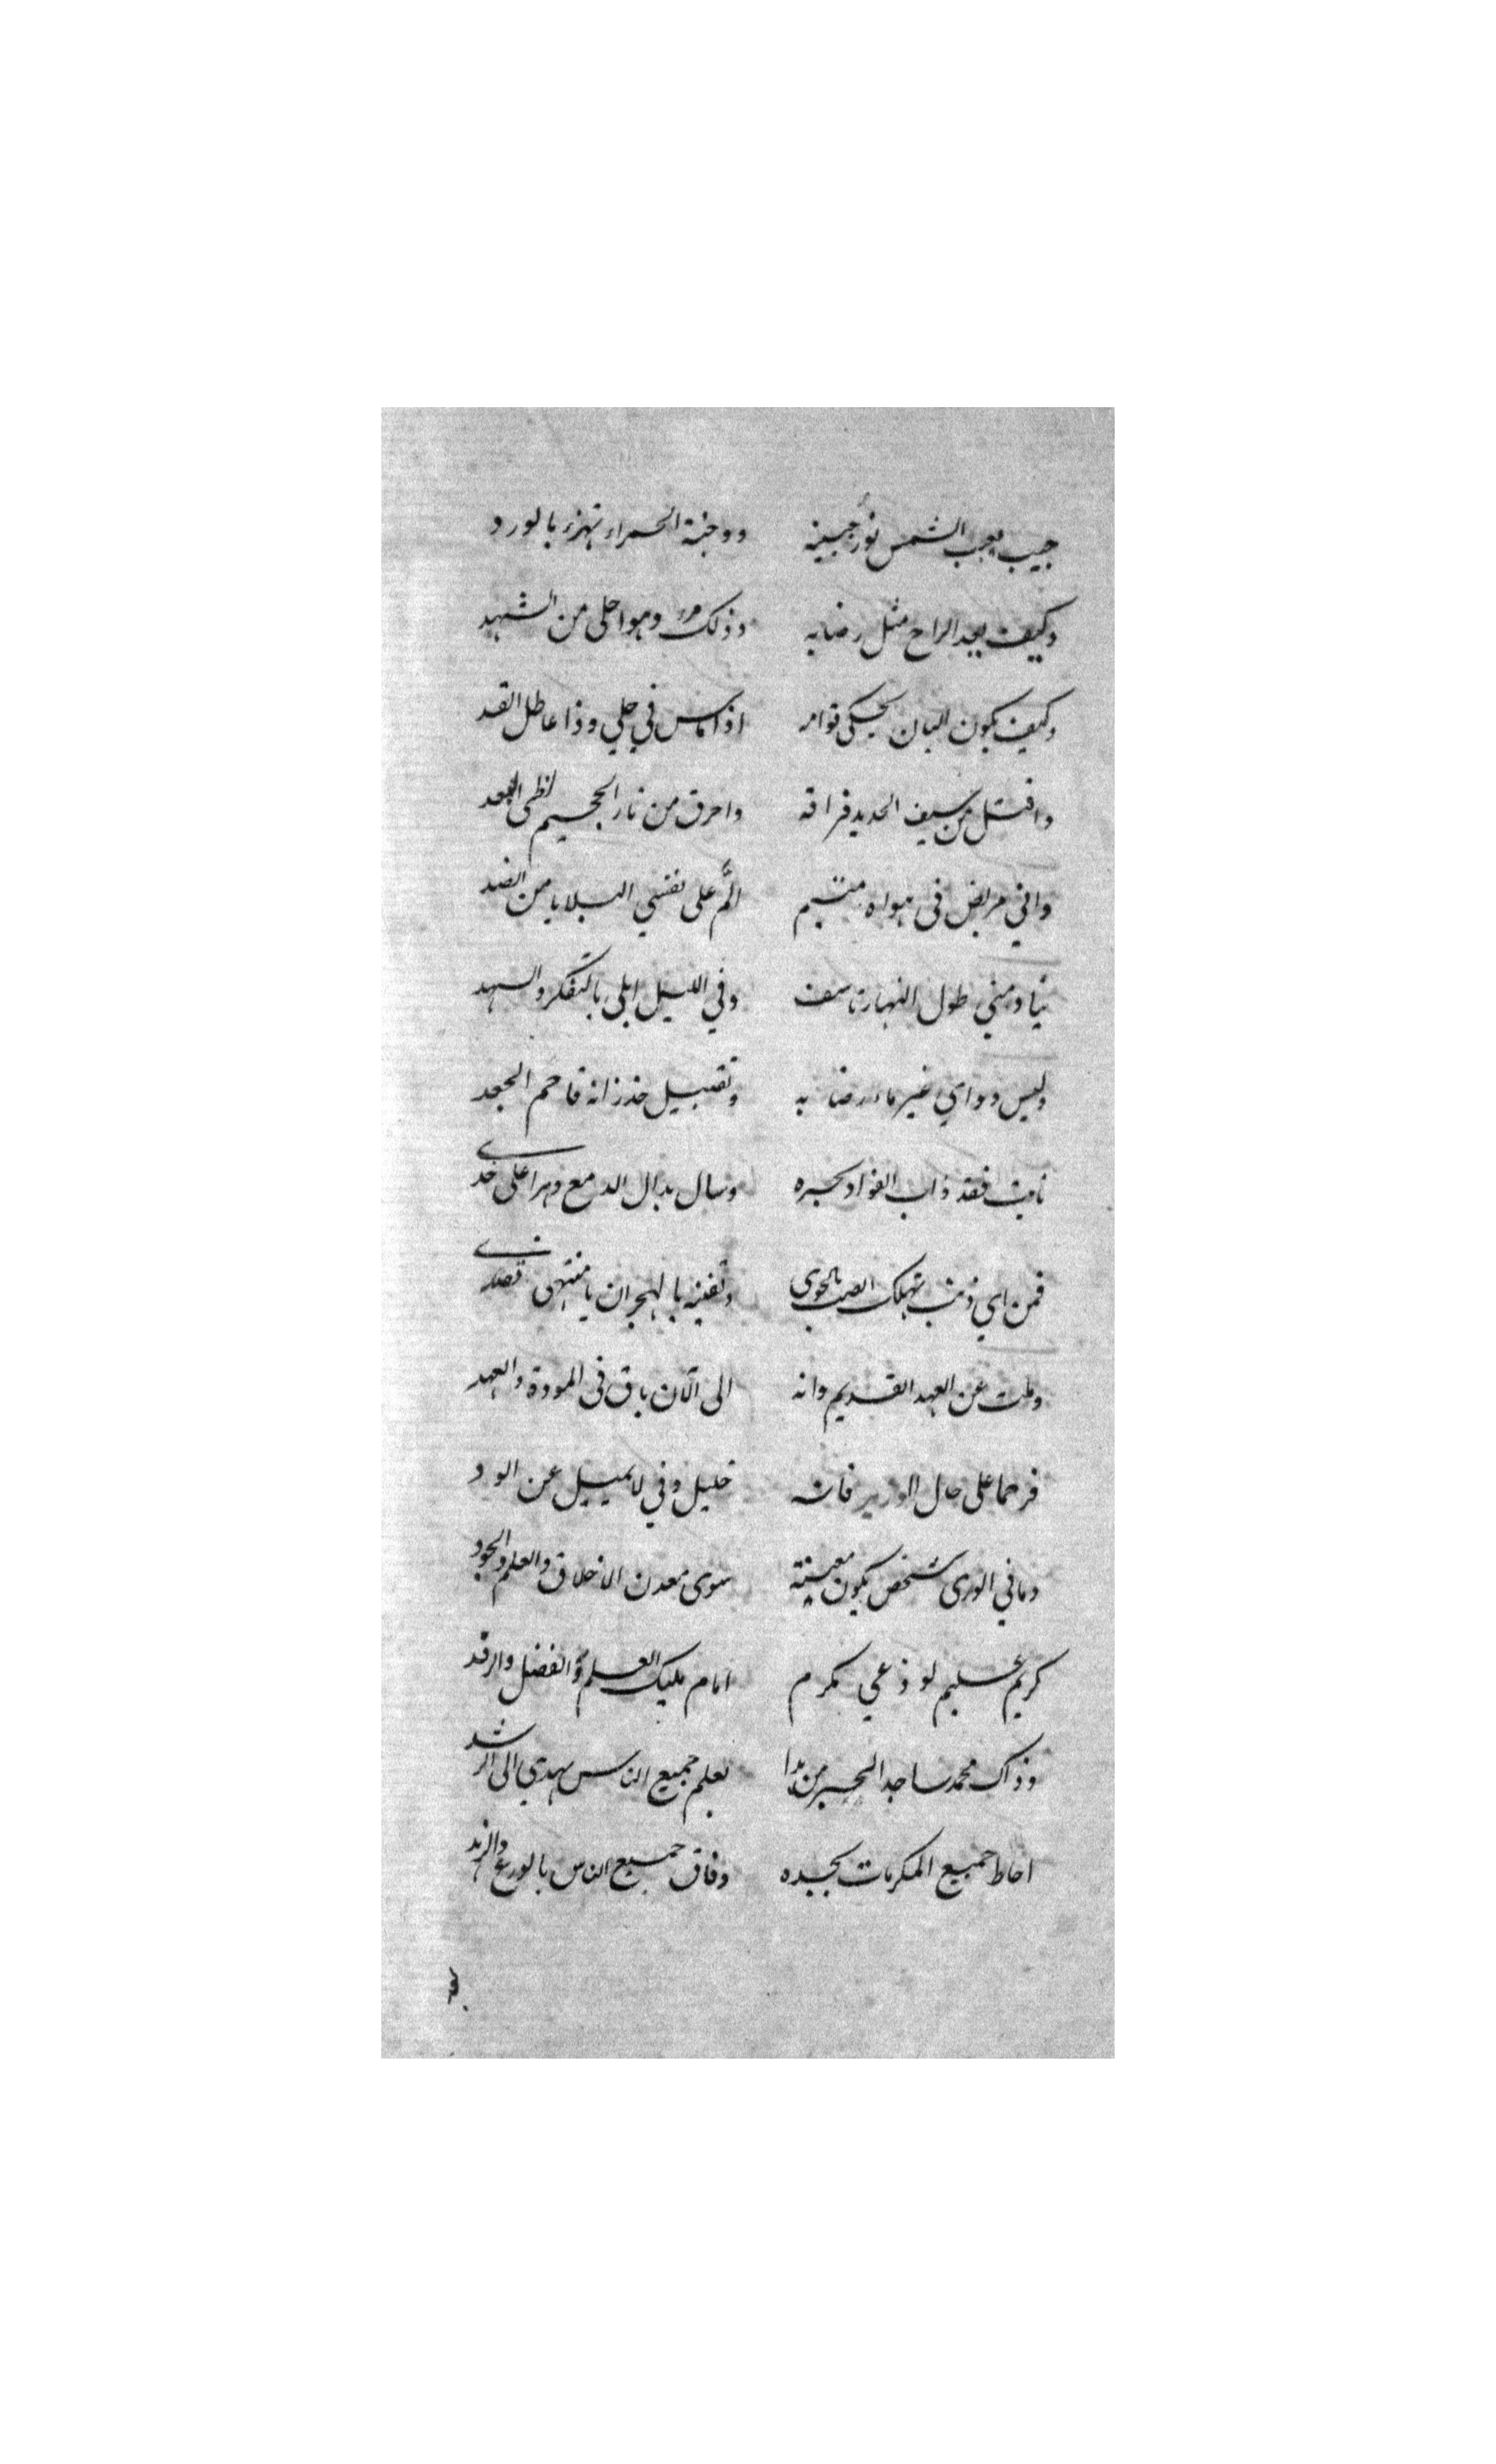 حبيب يعجب الشمس نور جبينه ووجنة الحمراء تهزء بالورد
وكيف يعد الراح مثل رضابه وذلك مر وهو احلى من الشهد
وكيف يكون البان يحكي قوامه اذا ماس في حلي وذا عاطل القد
واقتل من سيف الحديد فراقه واحرق من نار الجحيم لظى البعد
واني مريض في هواه متيم الم على نفسي البلايا من الضد
ينادمني طول النهار تاسف وفي الليل ابلى بالتفكر والسهد
وليس دوائي غير ماء رضابه وتقبيل خد زانه فاحم الجعد
فقد ذاب الفواد بحره وسال بذال الدمع وهرا على خدي
فمن اي ذنب تهلك الصب بالجوى وتفنيه بالهجران يا منتهى قصدي
وملت عن العهد القديم وانه الى الآن باق في المودة والعهد
فرحما على حال الوزير فانه خليل وفي لا يميل عن الود
وما في الورى شخص يكون معينه سوى معدن الاخلاق والعلم والجود
كريم عليم لوذعي مكرم امام مليك العلم والفضل والرفد
وذاك محمد ساجد الحبر من بدا بعلم جميع الناس يهدي الى الرشد
احاط جميع المكرمات بجده وفاق جميع الناس بالورع والزهد